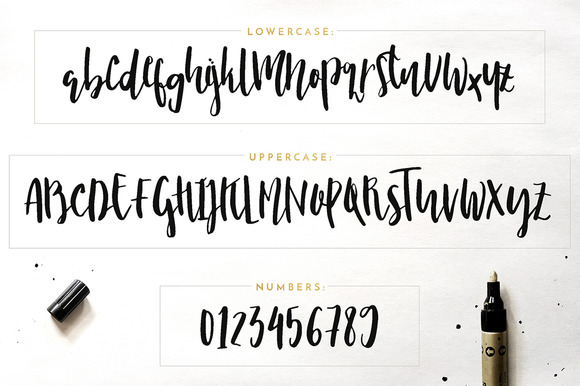 LOWERCASE:
abcdefghijklmnopqrstuvwxyz
UPPERCASE:
ABCDEFGHIJKLMNOPQRSTUVWXYZ
NUMBERS:
0123456789